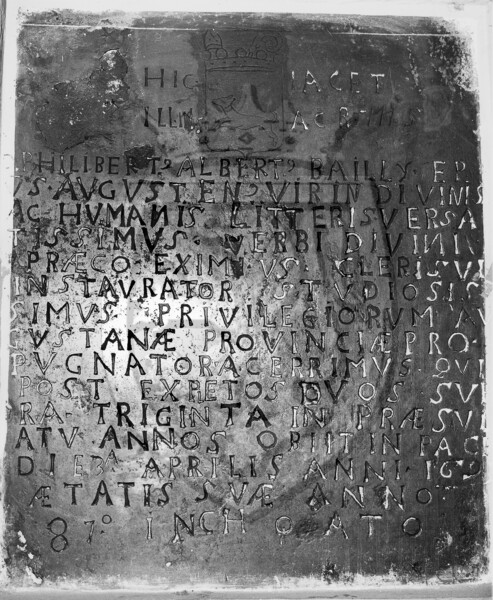 HIC IACET
ILLM AC RMIS
PHILIBERT⁹ ALBERT⁹ BAILLY · EP
VS · AVGVSTEN⁹ VIR IN DIVINIS
AC HVMANIS LITTERIS VERSA
TISSIMVS · VERBI DIVINI
PRÆCO EXIMIVS CLERI SVI
INSTAVRATOR STVDIOSIS
SIMVS PRIVILEGIORVM AV
GVSTANÆ PROVINCIÆ PRO-
PVGNATOR ACERRIMVS · QVI
POST EXPLETOS DVOS SV
RA TRIGINTA IN PRÆSV
ATV ANNOS OBIIT IN PAC
DIE 3ᴬ APRILIS ANNI ·
ÆTATIS SVÆ ANNO
87° INCHOATO